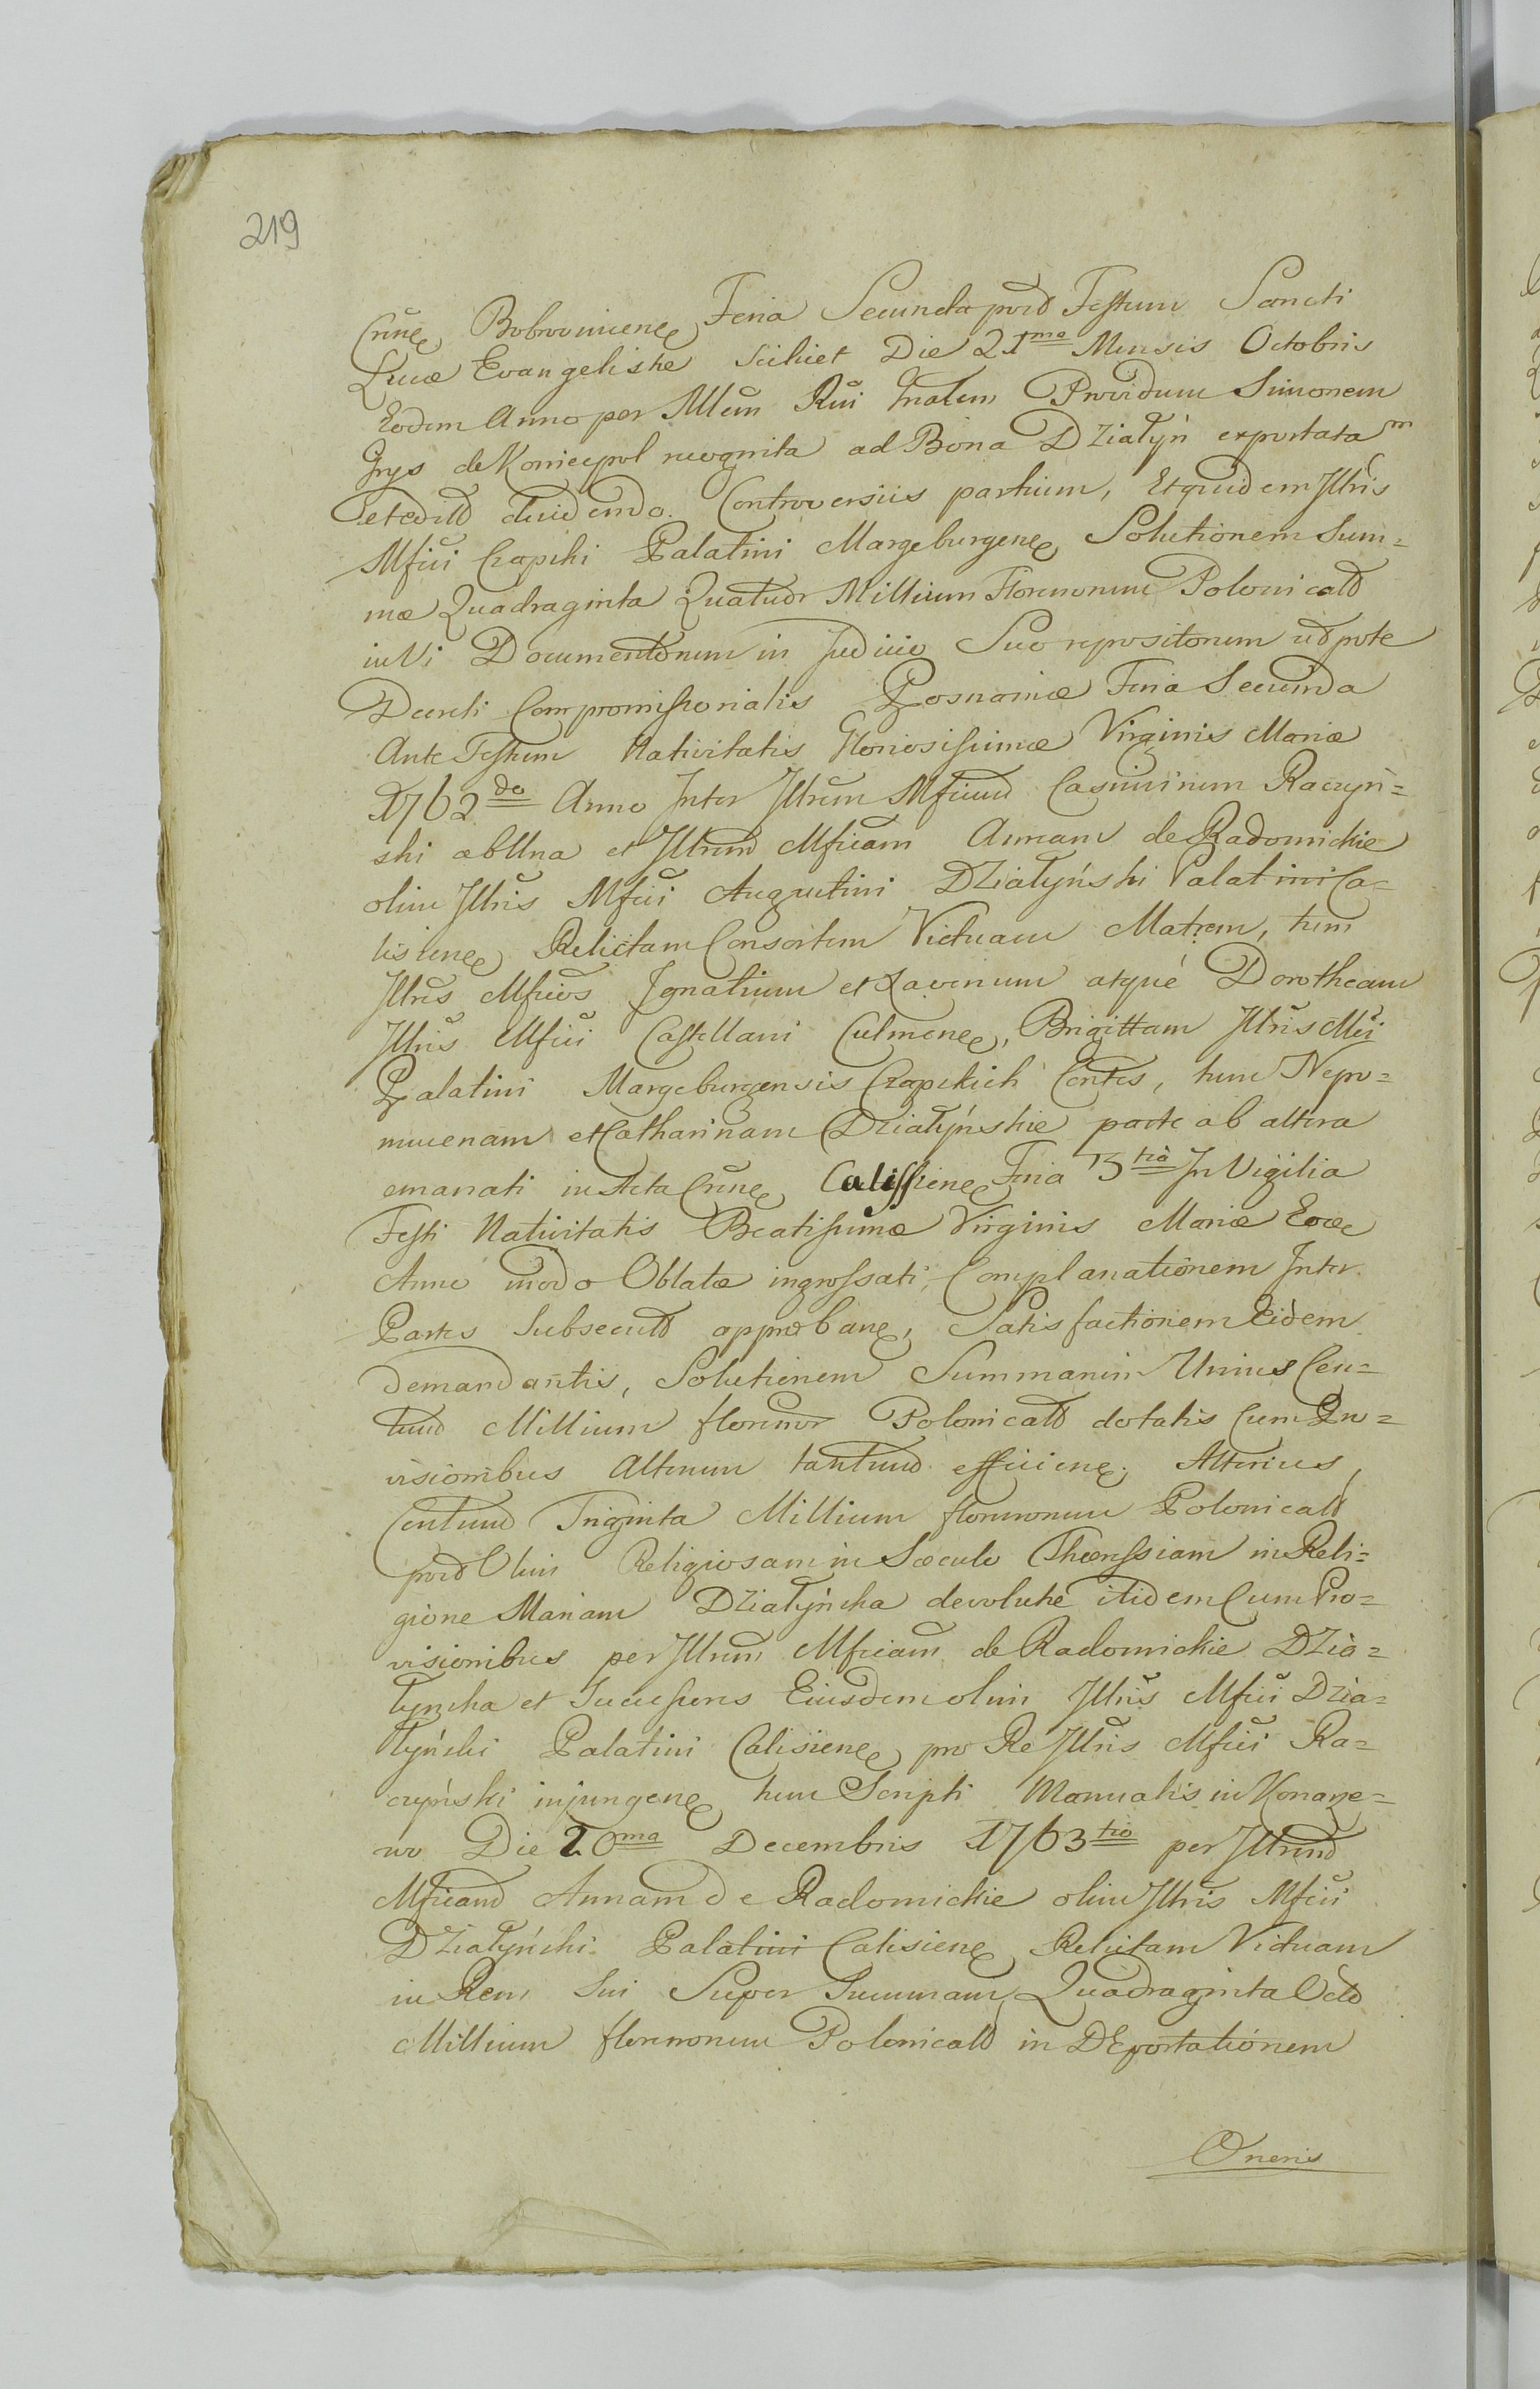 219
Crñe Bobrovnicene Feria Secunda post Festum Sancti
Lucæ Evangelistæ scilicet Die 21ma Mensis Octobris
Eodem Anno per Mlem Rñi Gnalem Providum Simonem
Grys de Koniecpol recognita ad Bona Działyń exportata
et edit dividendo. Controversiis partium, Et quidem Jllris
Mfici Czapski Palatini Margeburgene Solutionem Sum=
mæ Quadraginta Quatuor Millium Florenorum Polonicalt
in Vi Documentorum in Judicio Suo repositorum ut pote
Decreti Compromissorialis Posnaniæ Feria Secunda
Ante Festum Nativitatis Gloriosissimæ Virginis Mariæ
1762do Anno Inter Jllrem Mficum Casimirum Raczyń=
ski ab Una et Jllrem Mficam Annam de Radomickie
olim Jllris Mfici Augustini Działyński Palatini Ca=
lisiene Relictam Consortem Viduam Matrem, tum
Jllres Mficos Ignatium et Xaverium atque Dorotheam
Jllris Mfici Castellani Culmene, Brigittam Jllris Mci
Palatini Margeburgensis Czapskich Contes, tum Nepo=
mucenam et Catharinam Działyńskie parte ab altera
emanati in Acta Crñe Calissiene Feria 3tia In Vigilia
Festi Nativitatis Beatissimæ Virginis Mariæ Eoce
Anno modo Oblatæ ingrossati, Complanationem Inter
Partes Subsecutt approbane, Satisfactionem Eidem
demandantis, Solutionem Summarum Unius Cen=
tum Millium florenor Polonicalt dotalis Cum Pro=
visionibus alterum tantum efficiene; Alterius
Centum Triginta Millium florenorum Polonicalt
post Olim Religiosam in Sæculo Theressiam in Reli=
gione Mariam Działyńska devolutæ itidem Cum Pro=
visionibus per Jllrem Mficam de Radomickie Dzia=
łyńska et Successores Eiusdem olim Jllris Mfici Dzia=
łyński Palatini Calisiene pro Re Jllris Mfici Ra=
czyński injungene tum Scripti Manualis in Konarze=
wo Die 20ma Decembris 1763tio per Jllrem
Mficam Annam de Radomickie olim Jllris Mfici
Działyński Palatini Calisiene Relictam Viduam
in Rem Sui Super Summam Quadraginta Octo
Millium florenorum Polonicalt in DEportationem
Oneris